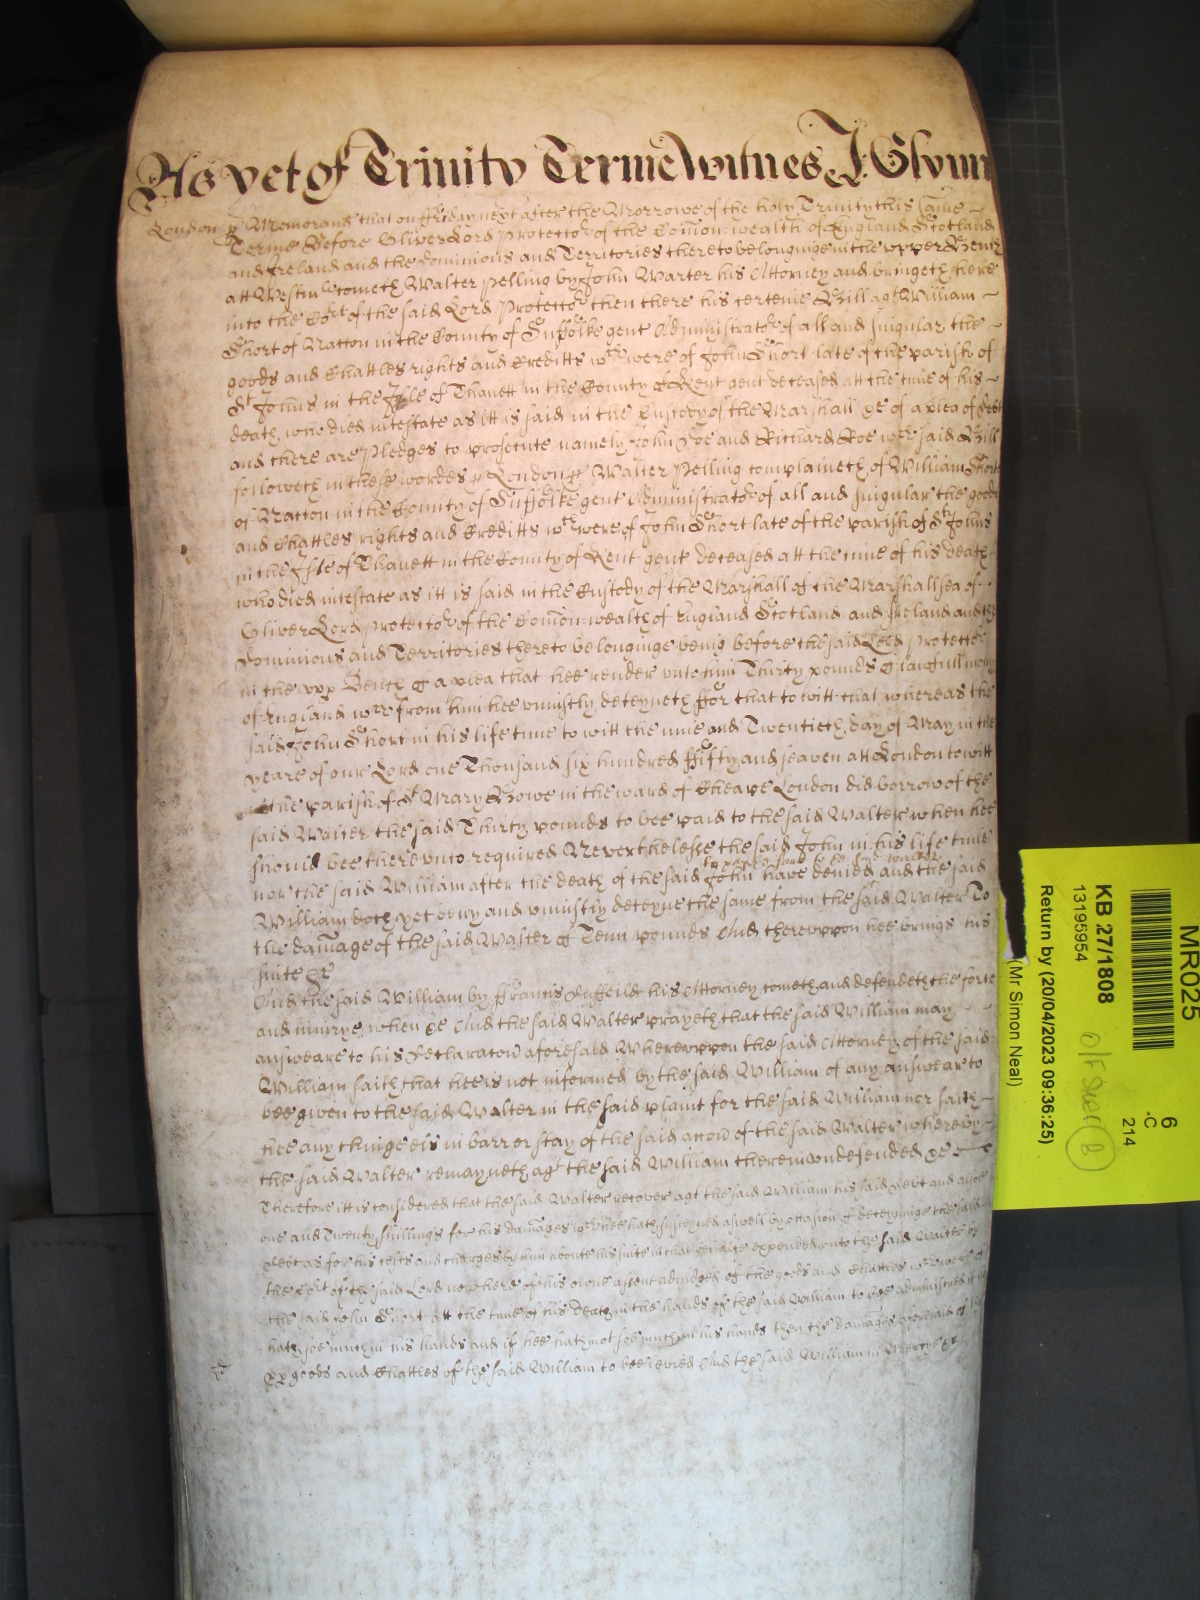 As yet of Trinity Terme Witnes J: Glynn
London ss Memorand that on ffriday next after the Morrowe of the holy Trinity this same
Terme Before Oliver Lord Protector of the Comon-wealth of England Scotland
and Ireland and the dominions and Territories thereto belonginge in the upper Bench
att Westm cometh Walter Pelling by John Warter his Attorney and bringeth here
into the Cort of the said Lord Protector then there his certeine Bill agt William
Short of Natton in the County of Suffolke gent Administrator of all and singular the
goods and Chattles rights and Creditts wch were of John Short late of the parish of
St Johns in the Isle of Thanett in the County of Kent gent deceased att the time of his
death, who died intestate as itt is said in the Custody of the Marshall &c of a plea of debt
and there are Pledges to prosecute namely John Doe and Richard Roe wch said Bill
followeth in these wordes ss London ss Walter Pelling complaineth of William Short
of Natton in the County of Suffolke gent Administrator of all and singular the goods
and Chattles rights and Creditts wch were of John Short late of the parish of St Johns
in the Isle of Thanett in the County of Kent gent deceased att the time of his death
who died intestate as itt is said in the Custody of the Marshall of the Marshallsea of
Oliver Lord Protector of the Comon-wealth of England Scotland and Ireland and the
dominions and Territories thereto belonginge being before the said Lord Protector
in the upp Bench of a plea that hee render unto him Thirty pounds of lawfull mony
of England wch from him hee uniustly deteyneth ffor that to witt that whereas the
said John Short in his life time to witt the nine and Twentieth day of May in the
yeare of our Lord one Thousand six hundred ffifty and seaven att London to witt
in the parish of St Mary Bowe in the ward of Cheape London did borrow of the
said Walter the said Thirty pounds to bee paid to the said Walter when hee
should bee thereunto required Neverthelesse the said John in his life time
nor the said William after the death of the said John have denied and the said
William doth yet deny and uniustly deteyne the same from the said Walter To
the damage of the said Walter of Tenn pounds And thereuppon hee brings his
suite &c
And the said William by ffrancis Duffeild his Attorney cometh and defendeth the force
and iniurye when &c And the said Walter prayeth that the said William may
answeare to his declaracon aforesaid Whereuppon the said Attorney of the said
William saith that hee is not informed by the said William of any answear to
bee given to the said Walter in the said plaint for the said William nor saith
hee any thinge els in barr or stay of the said accon of the said Walter whereby
the said Walter remayneth agt the said William therein undefended &c
Therefore itt is considered that the said Walter recover agt the said William his said debt and alsoe
one and Twenty shillings for his damages wch hee hath susteyned aswell by occasion of deteyninge the said
debt as for his costs and charges by him about his suite in that behalfe expended unto the said Walter by
the Cort of the said Lord now here of his owne assent adiudged of the goods and Chattles wch were of
the said John Short att the time of his death in the hands of the said William to bee administred if hee
hath soe much in his hands and if hee hath not soe much in his hands then the damages aforesaid of the
pp goods and Chattles of the said William to bee levied And the said William in Mercye &c
MR025
6
-C
214
KB 27/1808
13195954
Return by (20/04/2023 09:36:25)
(Mr Simon Neal)